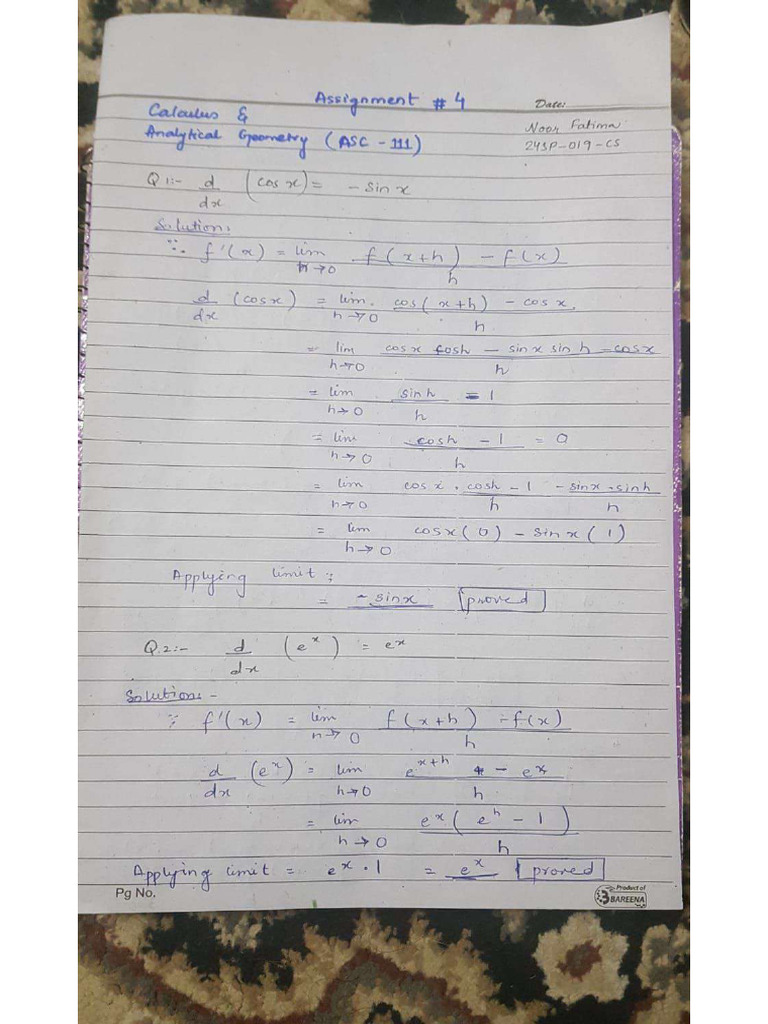 Assignment # 4
Date:
Calculus &
Noor Fatima
Analytical Geometry (ASC - 111)
24SP-019-CS
Q1:- d/dx (cos x) = - sin x
Solution:
∵ f'(x) = lim h→0 f(x+h) - f(x) / h
d/dx (cosx) = lim h→0 cos(x+h) - cosx / h
= lim h→0 cosx cosh - sinx sinh - cosx / h
= lim h→0 sinh / h = 1
= lim h→0 cosh - 1 / h = 0
= lim h→0 cosx . cosh - 1 / h - sinx . sinh / h
= lim h→0 cosx(0) - sinx(1)
Applying limit ;
= - sinx proved
Q.2:- d/dx (e^x) = e^x
Solution:-
∵ f'(x) = lim h→0 f(x+h) - f(x) / h
d/dx (e^x) = lim h→0 e^x+h - e^x / h
= lim h→0 e^x (e^h - 1) / h
Applying limit = e^x . 1 = e^x proved
Pg No.
Product of
BAREENA